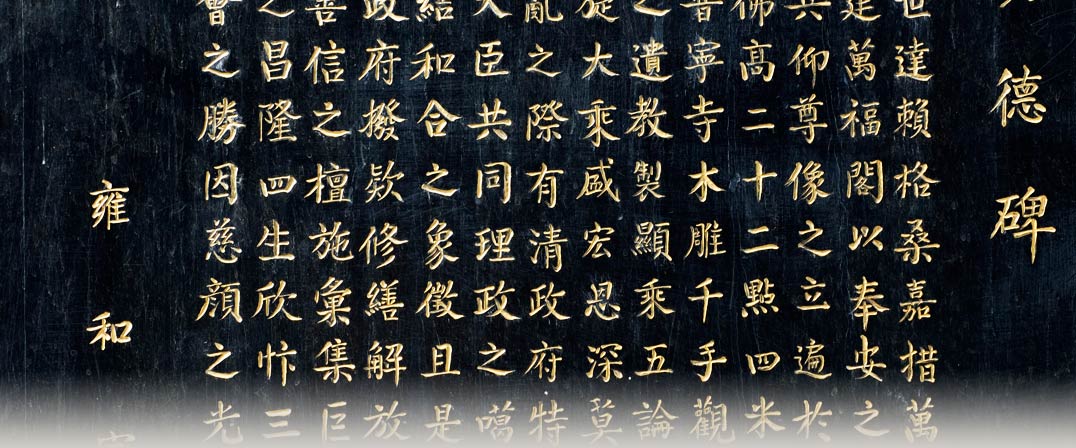 德碑
世達賴格桑嘉措萬
建萬福閣以奉安之
共仰尊像之立遍於
佛高二十二點四米
普寧寺木雕千手觀
之遺教製顯乘五論
旋大乘感宏恩深莫
亂之際有清政府特
大臣共同理政之噶
結和合之象徵且是
政府撥欵修繕解放
善信之檀施彙集巨
之昌隆四生欣忭三
會之勝因慈顏之光
雍和